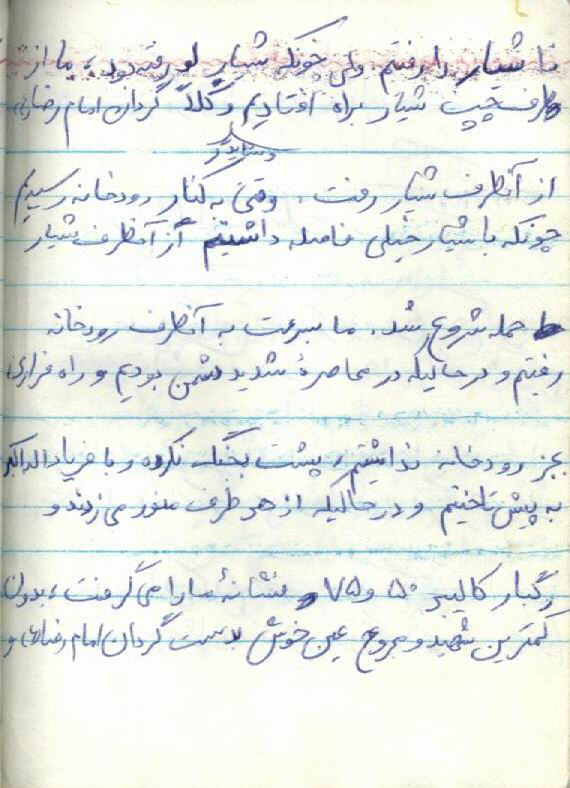 تا شیار را رفتیم ولی چونکه شیار لو رفته بود، ما از
طرف چپ شیار براه افتادیم و کلاً گردان امام رضا(ع)
از آنطرف شیار رفت. وقتی به کنار رودخانه رسیدیم
چونکه با شیار خیلی فاصله داشتیم از آنطرف شیار
حمله شروع شد. ما بسرعت به آنطرف رودخانه
رفتیم و در حالیکه در محاصرهٔ شدید دشمن بودیم و راه فراری
بجز رودخانه نداشتیم، پشت بجنگ نکرده و با فریاد الله اکبر
به پیش تاختیم و در حالیکه از هر طرف منور می زدند و
رگبار کالیبر ۵۰ و ۷۵ نشانهٔ ما را می گرفت، بدون
کمترین شهید و مجروح عین خوش بدست گردان امام رضا(ع) و